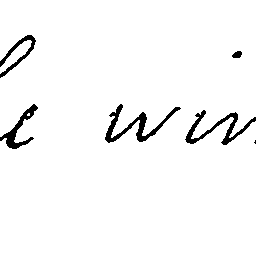 he win